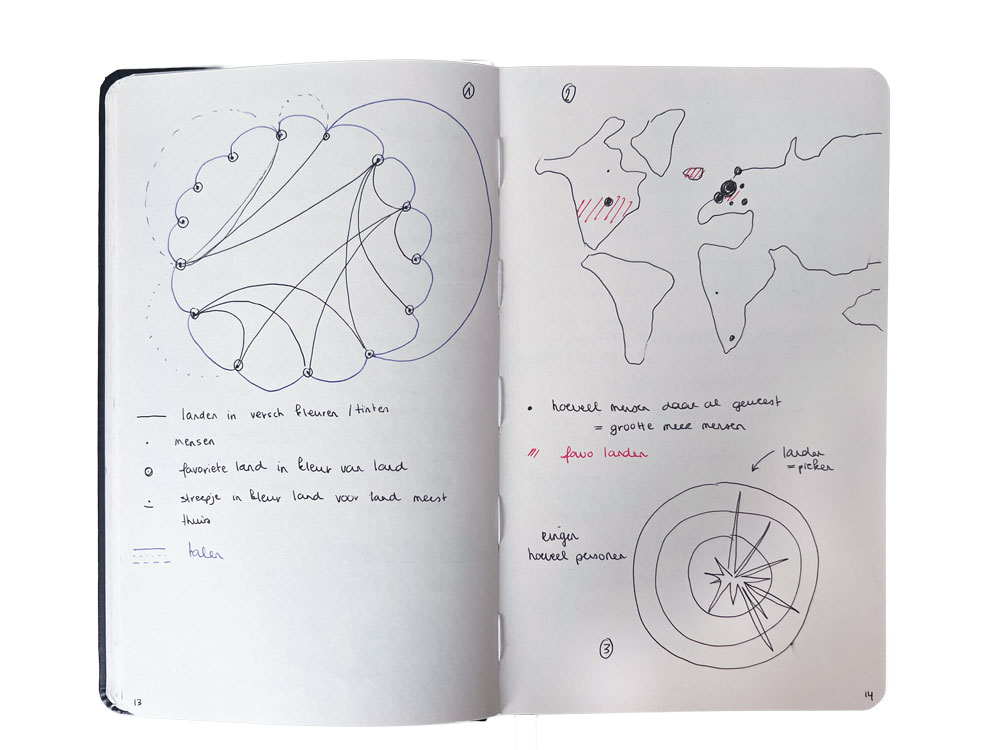 1
landen in versch kleuren / tinten
mensen
favoriete land in kleur van land
streepje in kleur land voor land meest
thuis
talen
13
2
hoeveel mensen daar al geweest
= grootte meer mensen
favo landen
landen
= pieken
ringen
hoeveel personen
3
14